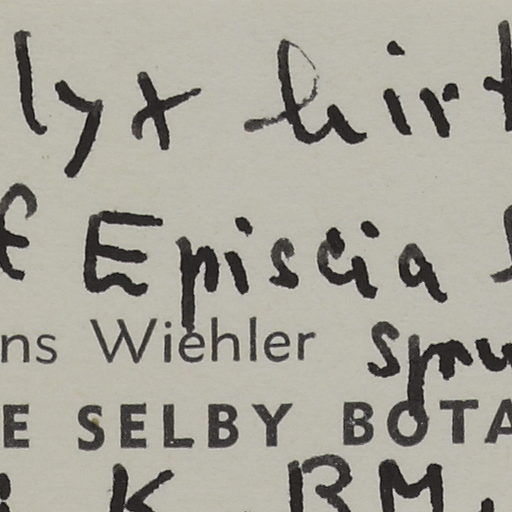 lyx hirt
f Episcia S
ns Wiehler spru
E SELBY BOTA
K BM.